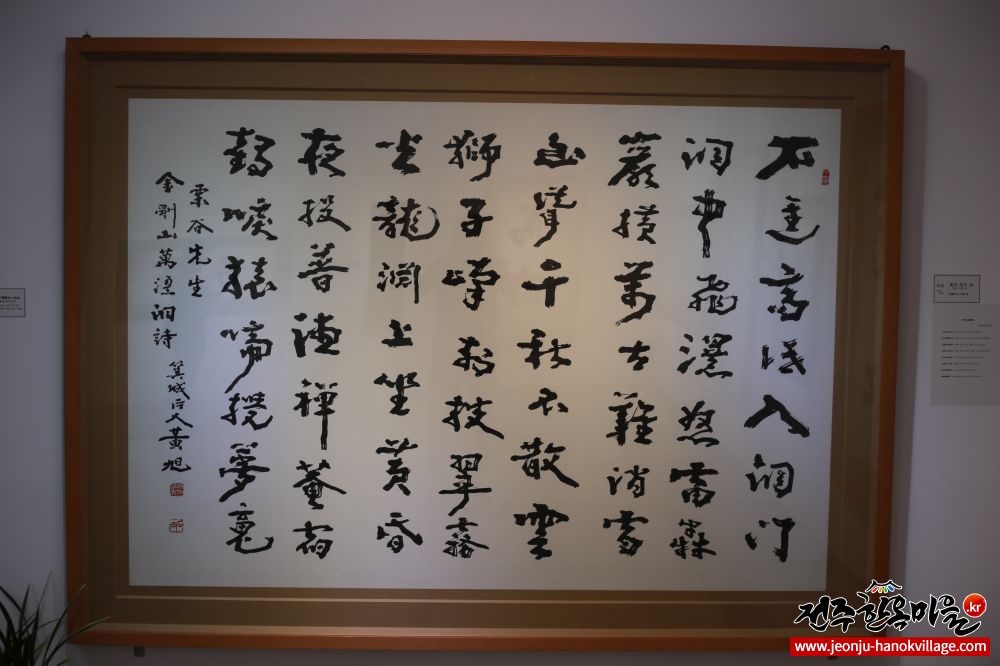 石逕高低入洞門
洞中飛瀑怒雷奔
巖橫萬古難消雪
山聳千秋不散雲
獅子峰前披翠霧
火龍淵上坐黃昏
夜投普德禪菴宿
鶴唳猿啼攪夢魂
栗谷先生
金剛山萬瀑洞詩 箕城后人黃旭
전주한옥마을.kr
www.jeonju-hanokvillage.com